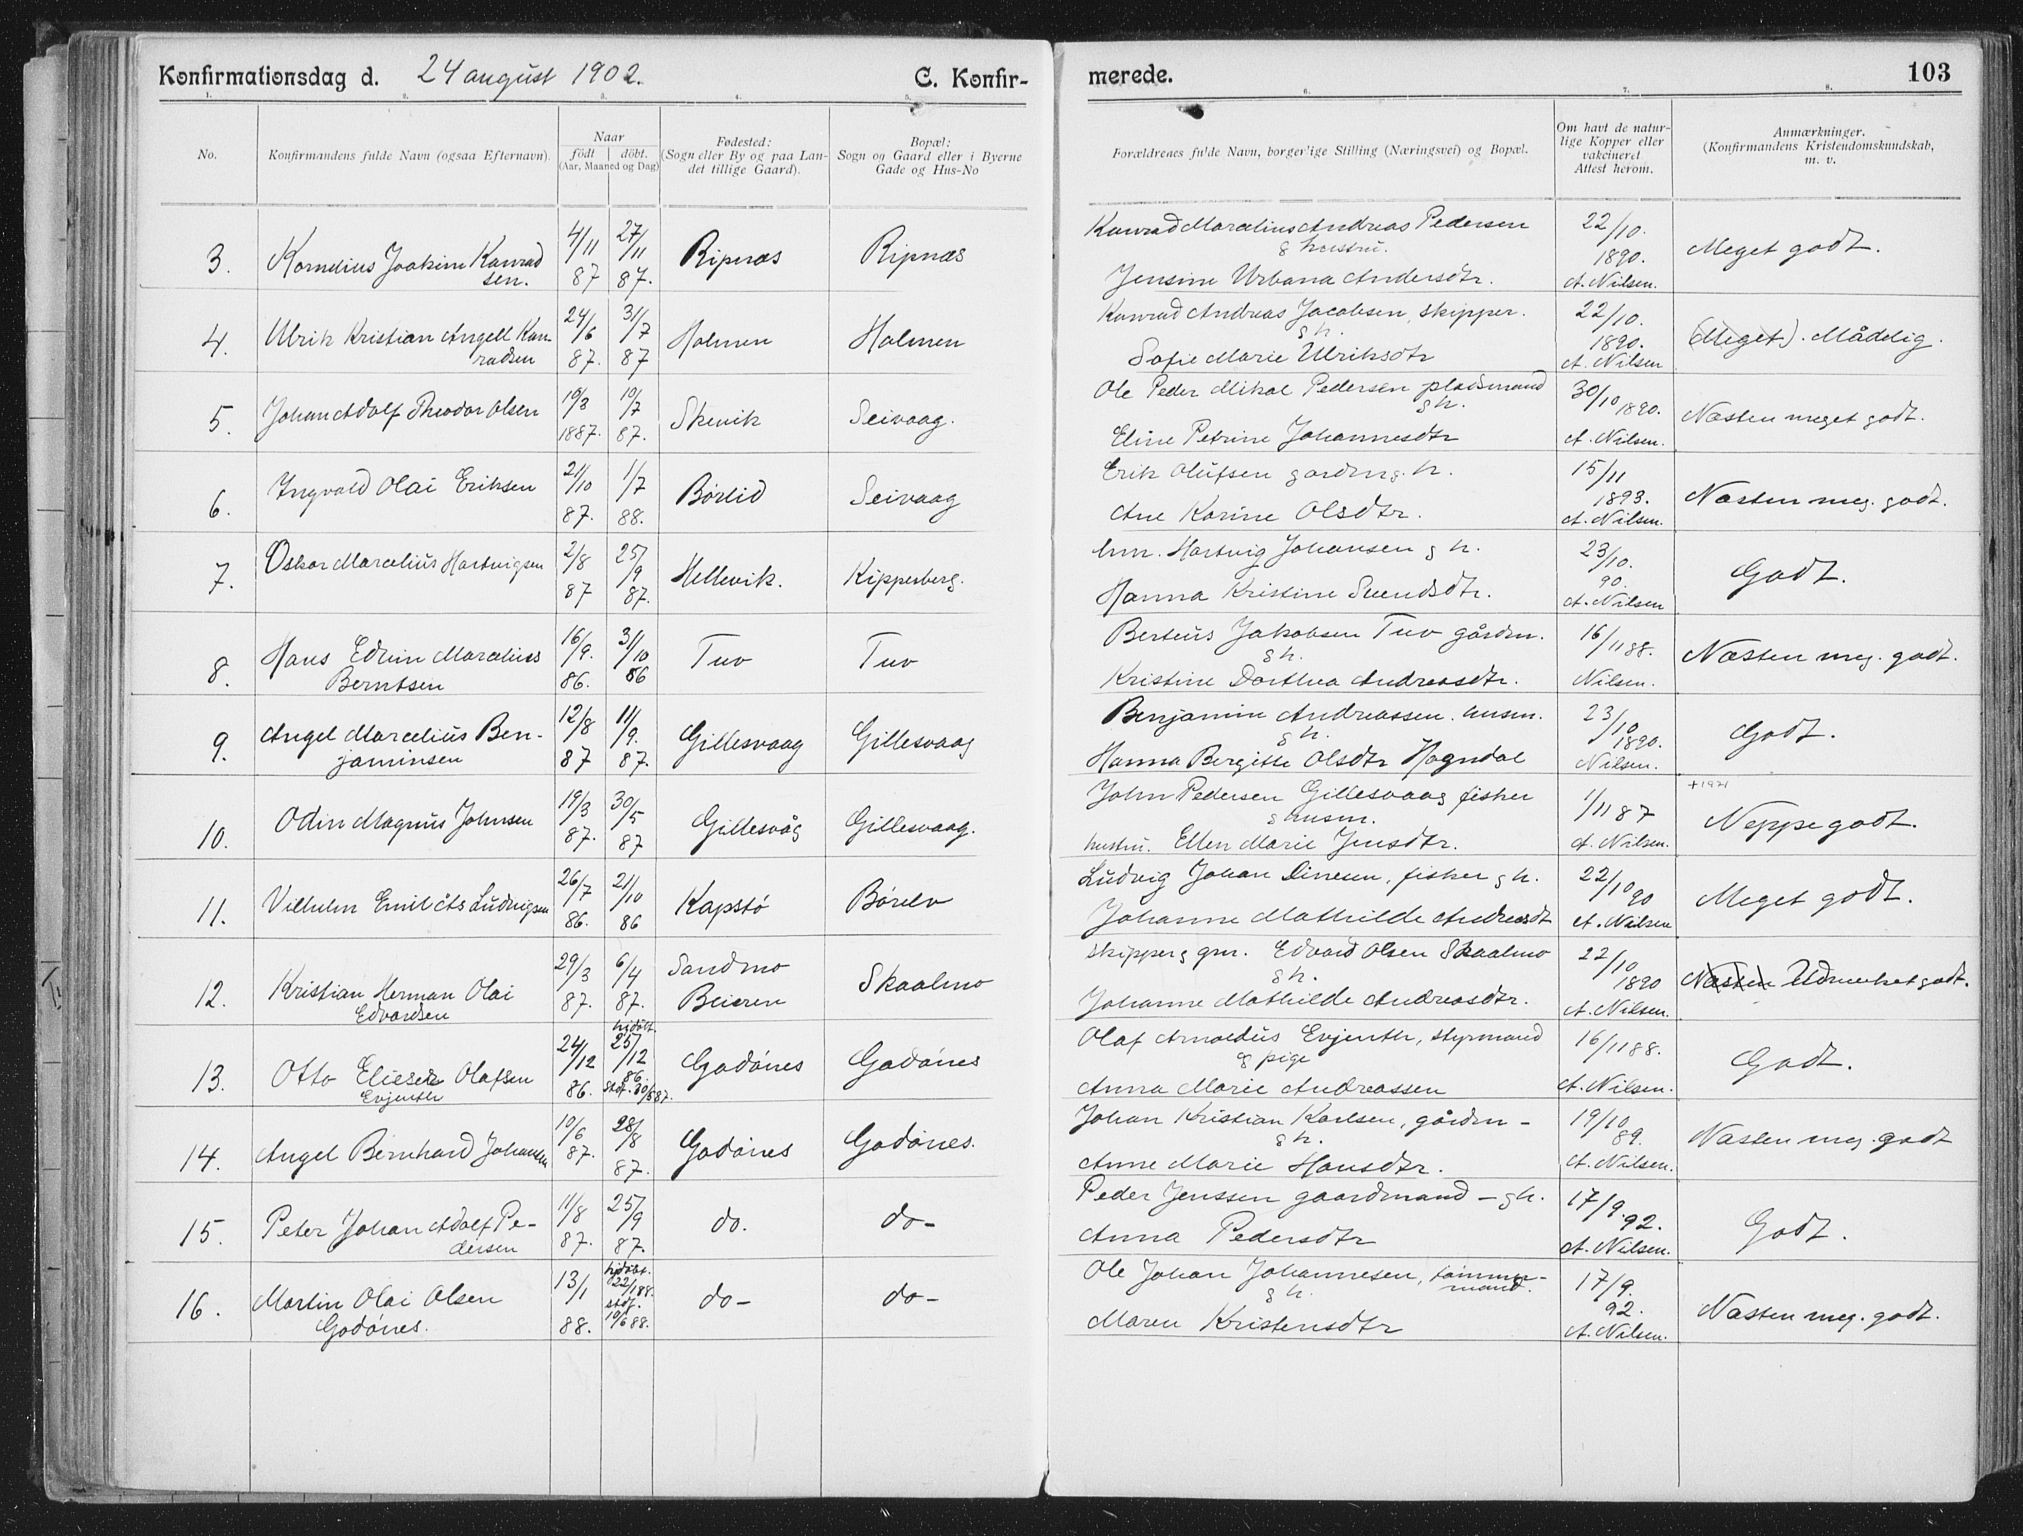 Konfirmationsdag d. 24 august 1902. C. Konfir-
merede. 103
1. 2. 3. 4. 5. 6. 7. 8.
No.
Konfirmandens fulde Navn (ogsaa Efternavn).
Naar
födt | döbt.
(Aar, Maaned og Dag)
Fødested:
(Sogn eller By og paa Lan-
det tillige Gaard).
Bopæl:
Sogn og Gaard eller i Byerne
Gade og Hus-No
Forældrenes fulde Navn, borgerlige Stilling (Næringsvei) og Bopæl.
Om havt de natur-
lige Kopper eller
vakcineret
Attest herom.
Anmærkninger.
(Konfirmandens Kristendomskundskab,
m. v.
3. Kornelius Joakim Konrad
sen.
4/11 87 27/11 87. Ripnæs Ripnæs
Konrad Marcelius Andreas Pedersen
& hustru.
Jensine Urbana Andersdtr.
22/10. 1890. A. Nilsen.
Meget godt.
4. Ulrik Kristian Angell Kon-
radsen
24/6 87. 31/7 87 Holmen Holmen
Konrad Andreas Jacobsen, skipper.
& h.
Sofie Marie Ulriksdtr
22/10. 1890. A. Nilsen
(Meget). Mådelig.
5. Johan Adolf Theodor Olsen
1887. 10/7 87. Skevik Seivaag.
Ole Peder Mikal Pedersen pladsmand
& h.
Eline Petrine Johannesdtr
30/10 1890. A. Nilsen.
Næsten meget godt.
6. Ingvald Olai Eriksen
21/10 87. 1/7 88. Børlid Seivaag
Erik Olufsen gardm & h.
Ane Karine Olsdtr.
15/11 1893. A. Nilsen.
Næsten meg. godt.
7. Oskar Marcelius Hartvigsen
2/8 87 25/9 87. Hellevik. Kipperberg.
hm. Hartvig Johansen & h.
Hanna Kristine Svendsdtr.
23/10. 90. A. Nilsen
Godt.
8. Hans Edvin Marcelius
Berntsen
16/9. 86. 31/10 86 Tuv Tuv
Berteus Jakobsen Tuv gårdm.
& h.
Kristine Dorthea Andreasdtr.
16/11 88. Nilsen.
Næsten meg. godt.
9. Angel Marcelius Ben-
jaminsen
12/8 87 11/9. 87. Gillesvaag Gillesvaag
Benjamin Andreassen. husm.
& h.
Hanna Bergitte Olsdtr Hogndal
23/10 1890. Nilsen.
Godt.
10. Odin Magnus Johnsen
19/3 87. 30/5 87 Gillesvåg Gillesvaag.
John Pedersen Gillesvaag fisker
& husm.
hustru. Ellen Marie Jensdtr.
1/11 87 A. Nilsen.
+1921
Neppe godt.
11. Vilhelm Emil Ludvigsen
26/7 86. 21/10 86 Kapstø Børelv
Ludvig Johan Dinesen, fisker & h.
Johanne Mathilde Andreasdt
22/10 90 A. Nilsen
Meget godt.
12. Kristian Herman Olai
Edvardsen
29/3 87. 6/4 87. Sandmo
Beieren
Skaalmo
skipper & gm. Edvard Olsen Skaalmo
& h.
Johanne Mathilde Andreasdtr.
22/10 1890 A. Nilsen.
Næsten Udmerket godt.
13. Otto Elieser Olafsen
Evjenth
24/12 86. hjdöbt. 25/12 86. stdf. 30/5 87. Godønes Godønes
Olaf Arnoldus Evjenth, styrmand
& pige
Anna Marie Andreassen
16/11 88. A. Nilsen.
Godt.
14. Angel Bernhard Johansen
10/6 87. 28/8 87. Godønes Godønes.
Johan Kristian Karlsen, gårdm -
& h.
Anne Marie Hansdtr.
19/10 89. A. Nilsen.
Næsten meg. godt
15. Peter Johan Adolf Pe-
dersen
11/8 87. 25/9 87. do. do-
Peder Jenssen gaardmand - & h.
Anna Pedersdtr
17/9. 92. A. Nilsen.
Godt.
16. Martin Olai Olsen
Godønes.
13/1 88. hjdöbt. 22/1 88. stdf. 10/6 88. do- do-
Ole Johan Johannesen, tømmer-
mand.
& h.
Maren Kristensdtr
17/9. 92. A. Nilsen.
Næsten meg. godt.